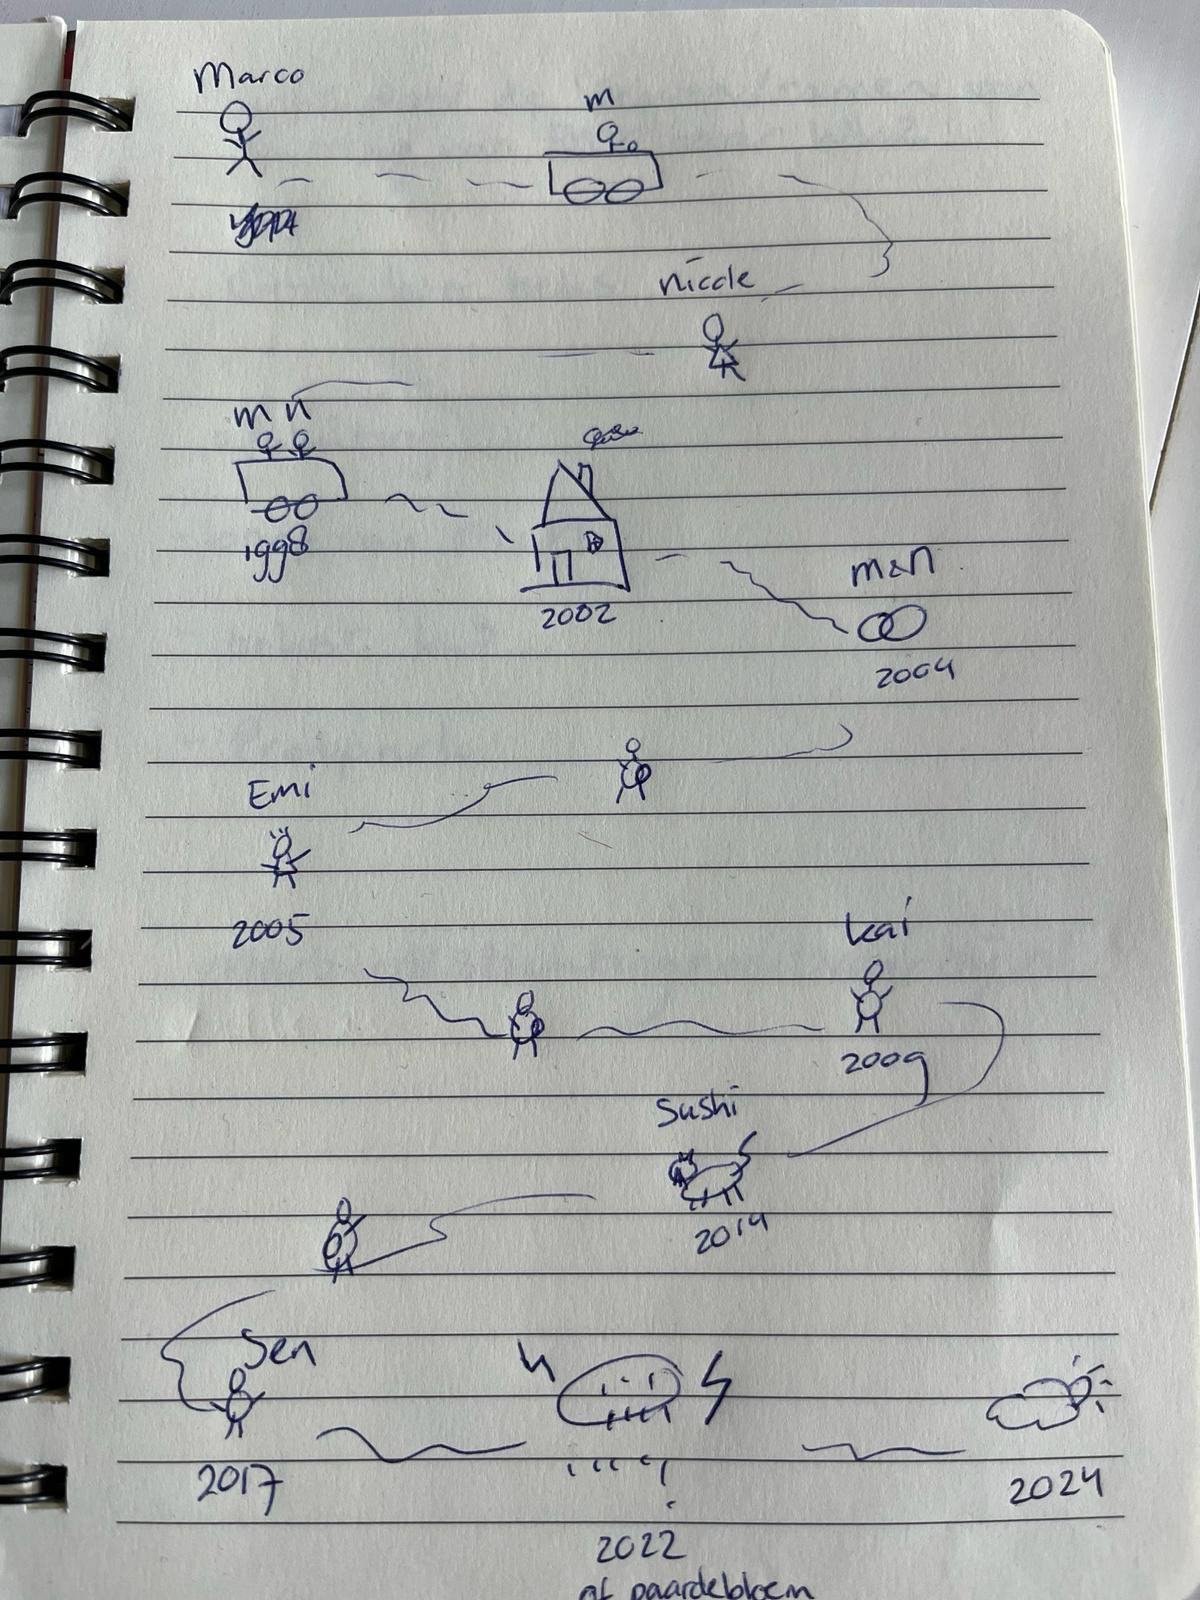 Marco
m
Nicole
m n
1998
2002
m&n
2004
Emi
2005
Kai
2009
Sushi
2014
Sen
2017
2024
2022
of paardebloem